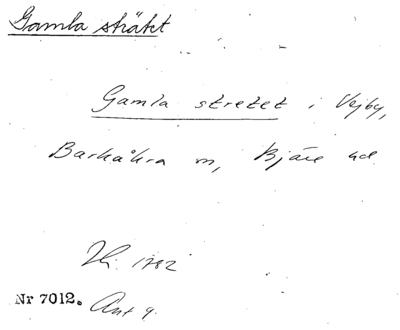 Gamla strätet
Gamla stretet i Vejby,
Barkåkra sn, Bjäre hd
Lh. 1782
Nr 7012. Ant 9.